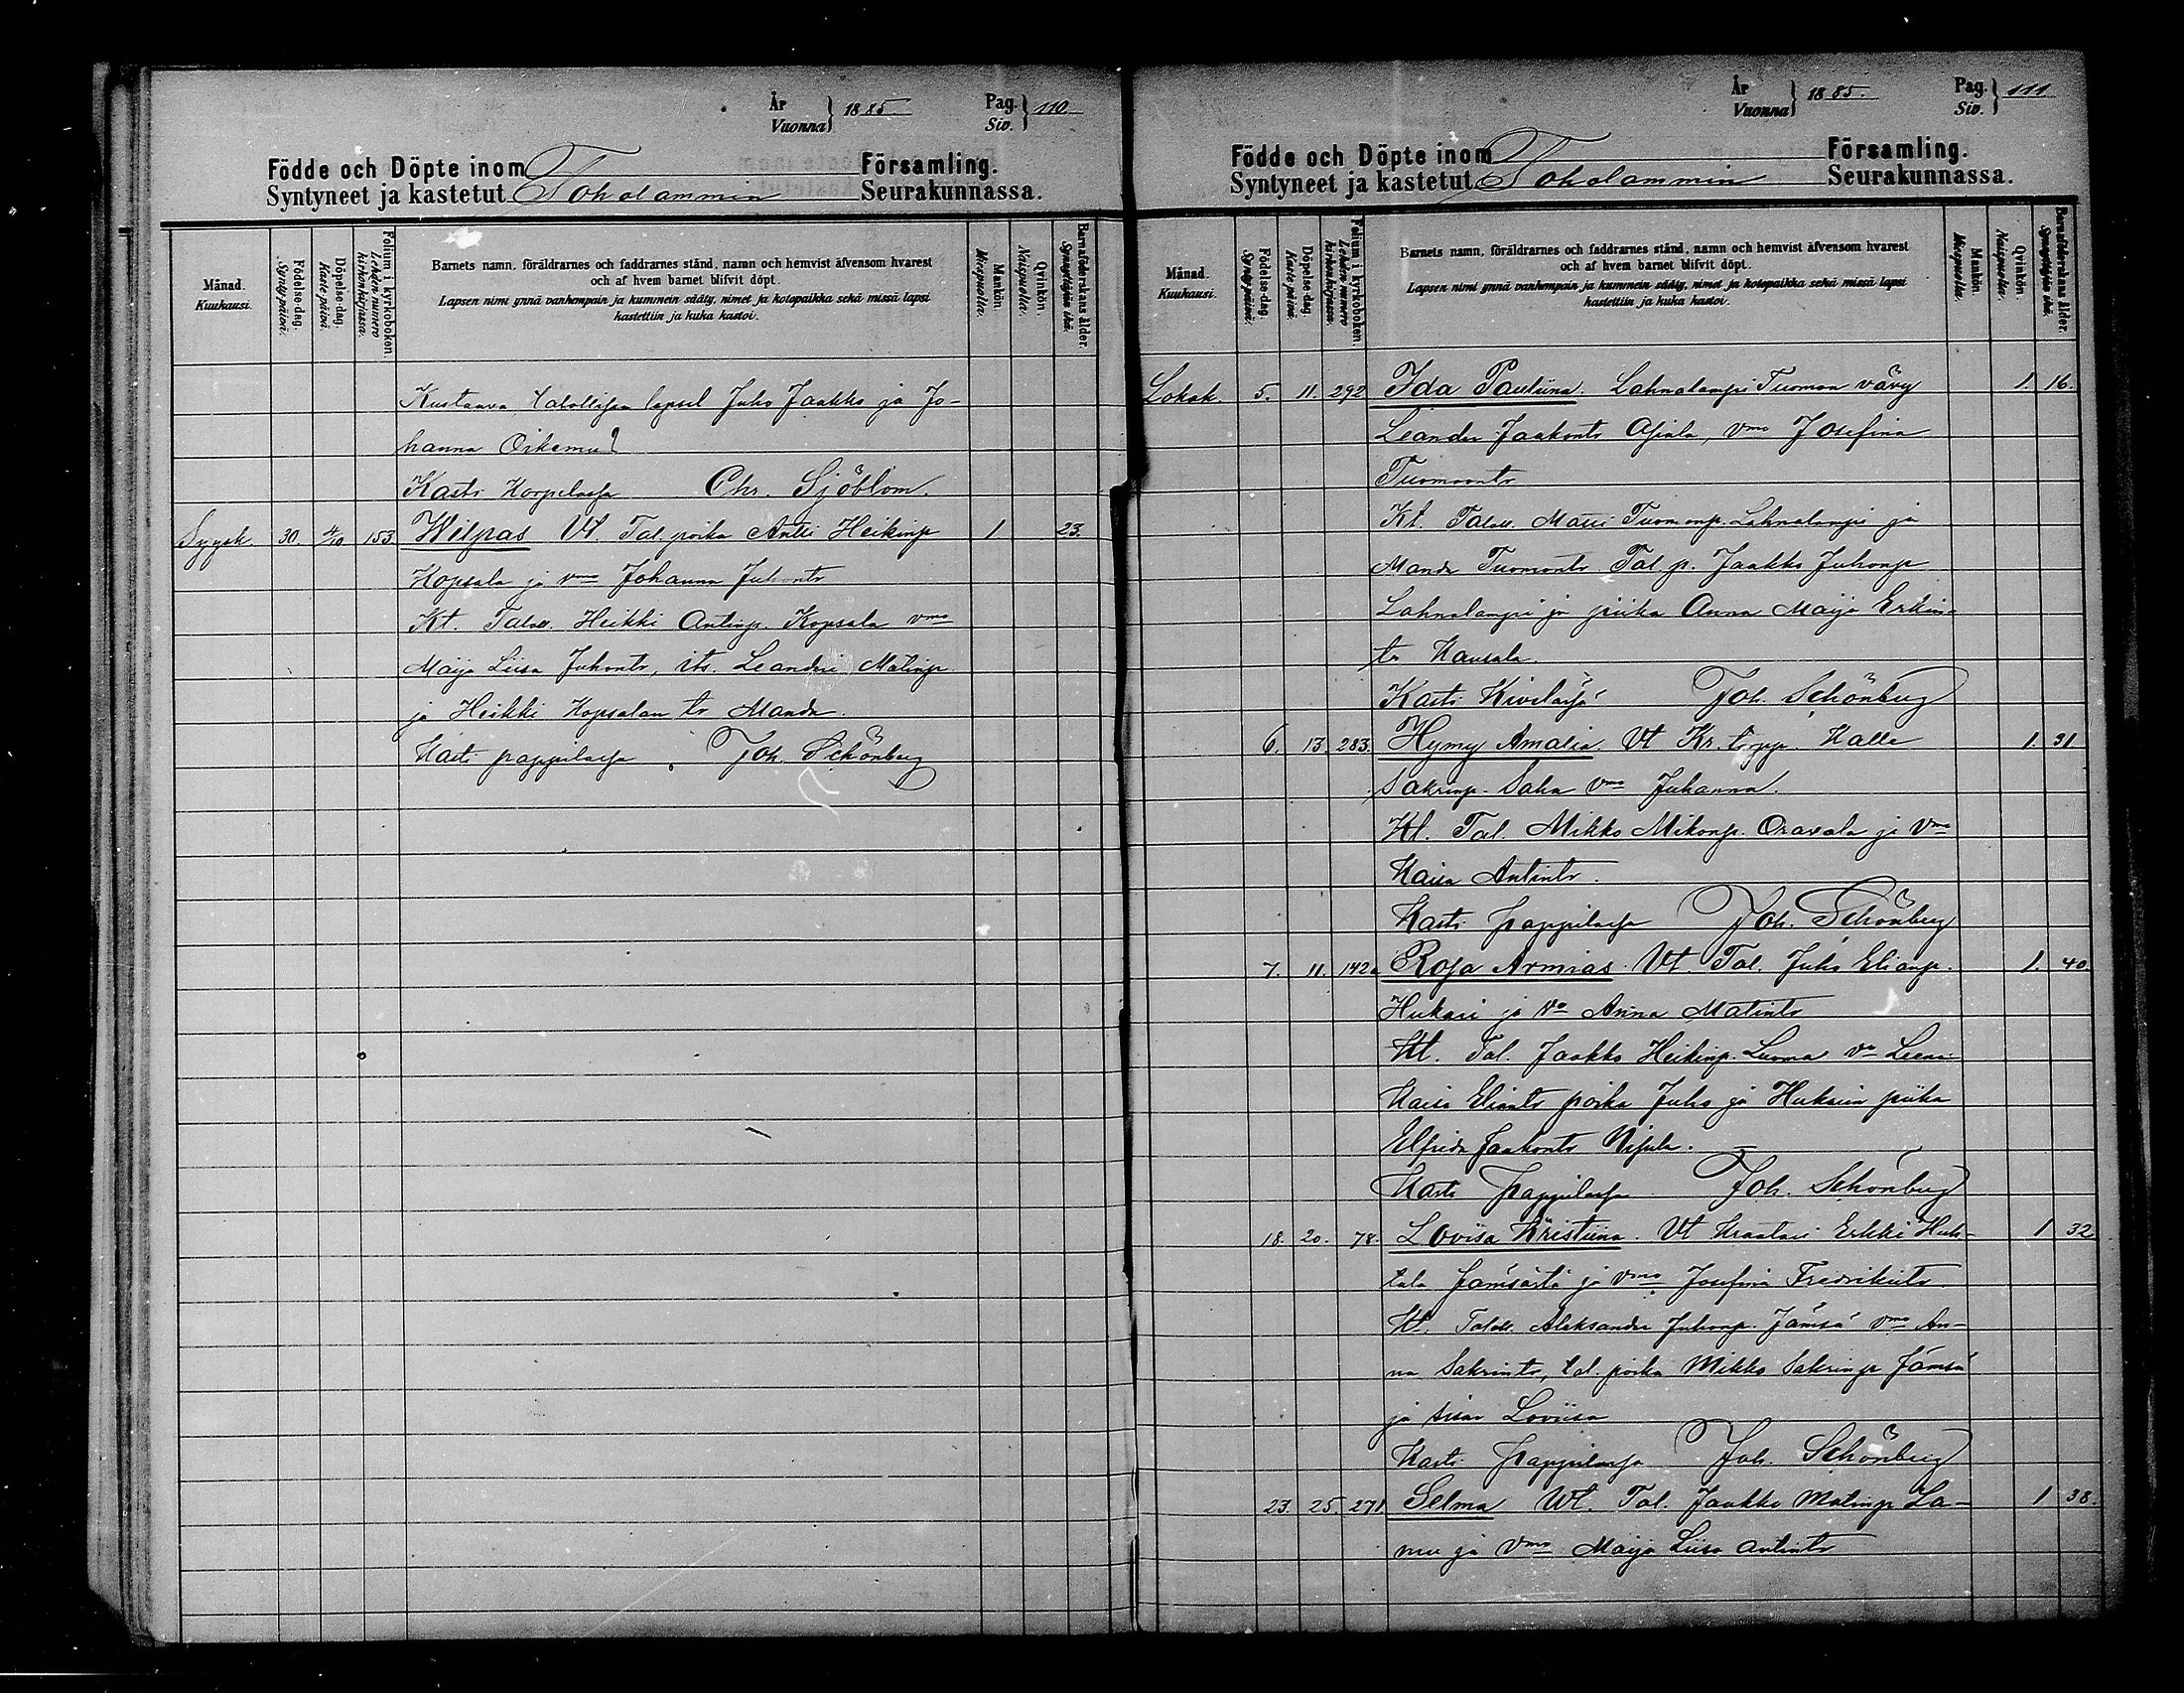 År
Vuonna } 1885.
Pag.
Siv. } 110.
Födde och Döpte inom Församling.
Syntyneet ja kastetut Toholammin Seurakunnassa.
Månad.
Kuukausi.
Födelse-dag.
Syntypäivä.
Döpelse-dag.
Kaste päivä.
Folium i kyrkoboken.
Lehden numero kirkonkirjassa.
Barnets namn, föräldrarnes och faddrarnes stånd, namn och hemvist äfvensom hvarest
och af hvem barnet blifvit döpt.
Lapsen nimi ynnä vanhempain ja kummein sääty, nimet ja kotopaikka sekä missä lapsi
kastettiin ja kuka kastoi.
Mankön.
Miespuolta.
Qvinkön.
Naispuolta.
Barnaföderskans ålder.
Synnyttäjän ikä.
Kustaava talollisen lapset Juho Jaakko ja Jo-
hanna Oikemus
Kasti Korpelassa Chr. Sjöblom.
Syysk. 30. 4/10 153. Wilpas Vt. Tal. poika Antti Heikinp 1 23.
Kopsala ja vmo Johanna Juhontr
Kt. Taloll. Heikki Antinp. Kopsala vmo
Maija Liisa Juhontr, its. Leanderi Matinp
ja Heikki Kopsalan tr Manda.
Kasti pappilassa Joh. Schönberg
År
Vuonna } 1885.
Pag.
Siv. } 111
Födde och Döpte inom Församling.
Syntyneet ja kastetut Toholammin Seurakunnassa.
Månad.
Kuukausi.
Födelse-dag.
Syntypäivä.
Döpelse-dag.
Kaste päivä.
Folium i kyrkoboken.
Lehden numero kirkonkirjassa.
Barnets namn, föräldrarnes och faddrarnes stånd, namn och hemvist äfvensom hvarest
och af hvem barnet blifvit döpt.
Lapsen nimi ynnä vanhempain ja kummein sääty, nimet ja kotopaikka sekä missä lapsi
kastettiin ja kuka kastoi.
Mankön.
Miespuolta.
Qvinkön.
Naispuolta.
Barnaföderskans ålder.
Synnyttäjän ikä.
Lokak. 5. 11. 292 Ida Pauliina. Lahnalampi Tuomaan vävy 1. 16.
Leander Jaakontr Asiala, vmo Josefina
Tuomaantr
Kt. Taloll. Matti Tuomanp. Lahnalampi ja
Manda Tuomontr Tal p. Jaakko Juhonp
Lahnalampi ja piika Anna Maija Erkin-
tr Kausala.
Kasti Kivelässä Joh. Schönberg
6. 13. 283. Hymy Amalia. Vt Kr. torpp. Kalle 1. 31
Sakrinp. Saha vmo Juhanna.
Kt. Tal. Mikko Mikonp. Oravala ja vmo
Kaisa Antintr.
Kasti pappilassa Joh. Schönberg
7. 11. 142. Rosa Armias. Vt. Tal. Juho Elianp. 1. 40
Hukari ja vo Anna Matintr
Kt. Tal. Jaakko Heikinp. Luoma vo Leena
Kaisa Eliantr poika Juho ja Hukarin piika
Elfrida Jaakontr
Kasti Pappilassa Joh. Schönberg
18. 20. 78. Lovisa Kristiina. Vt Kraatari Erkki Huh- 1 32
tala Jämsästä ja vmo Josefina Fredrikintr
Kt. Taloll. Aleksander Juhonp. Jämsä vmo An-
na Sakrintr, tal. poika Mikko Sakrinp Jämsä
ja sisar Loviisa
Kasti pappilassa Joh. Schönberg
23. 25. 271. Selma Vt. Tal. Jaakko Matinp La- 1 38.
mu ja vmo Maija Liisa Antintr